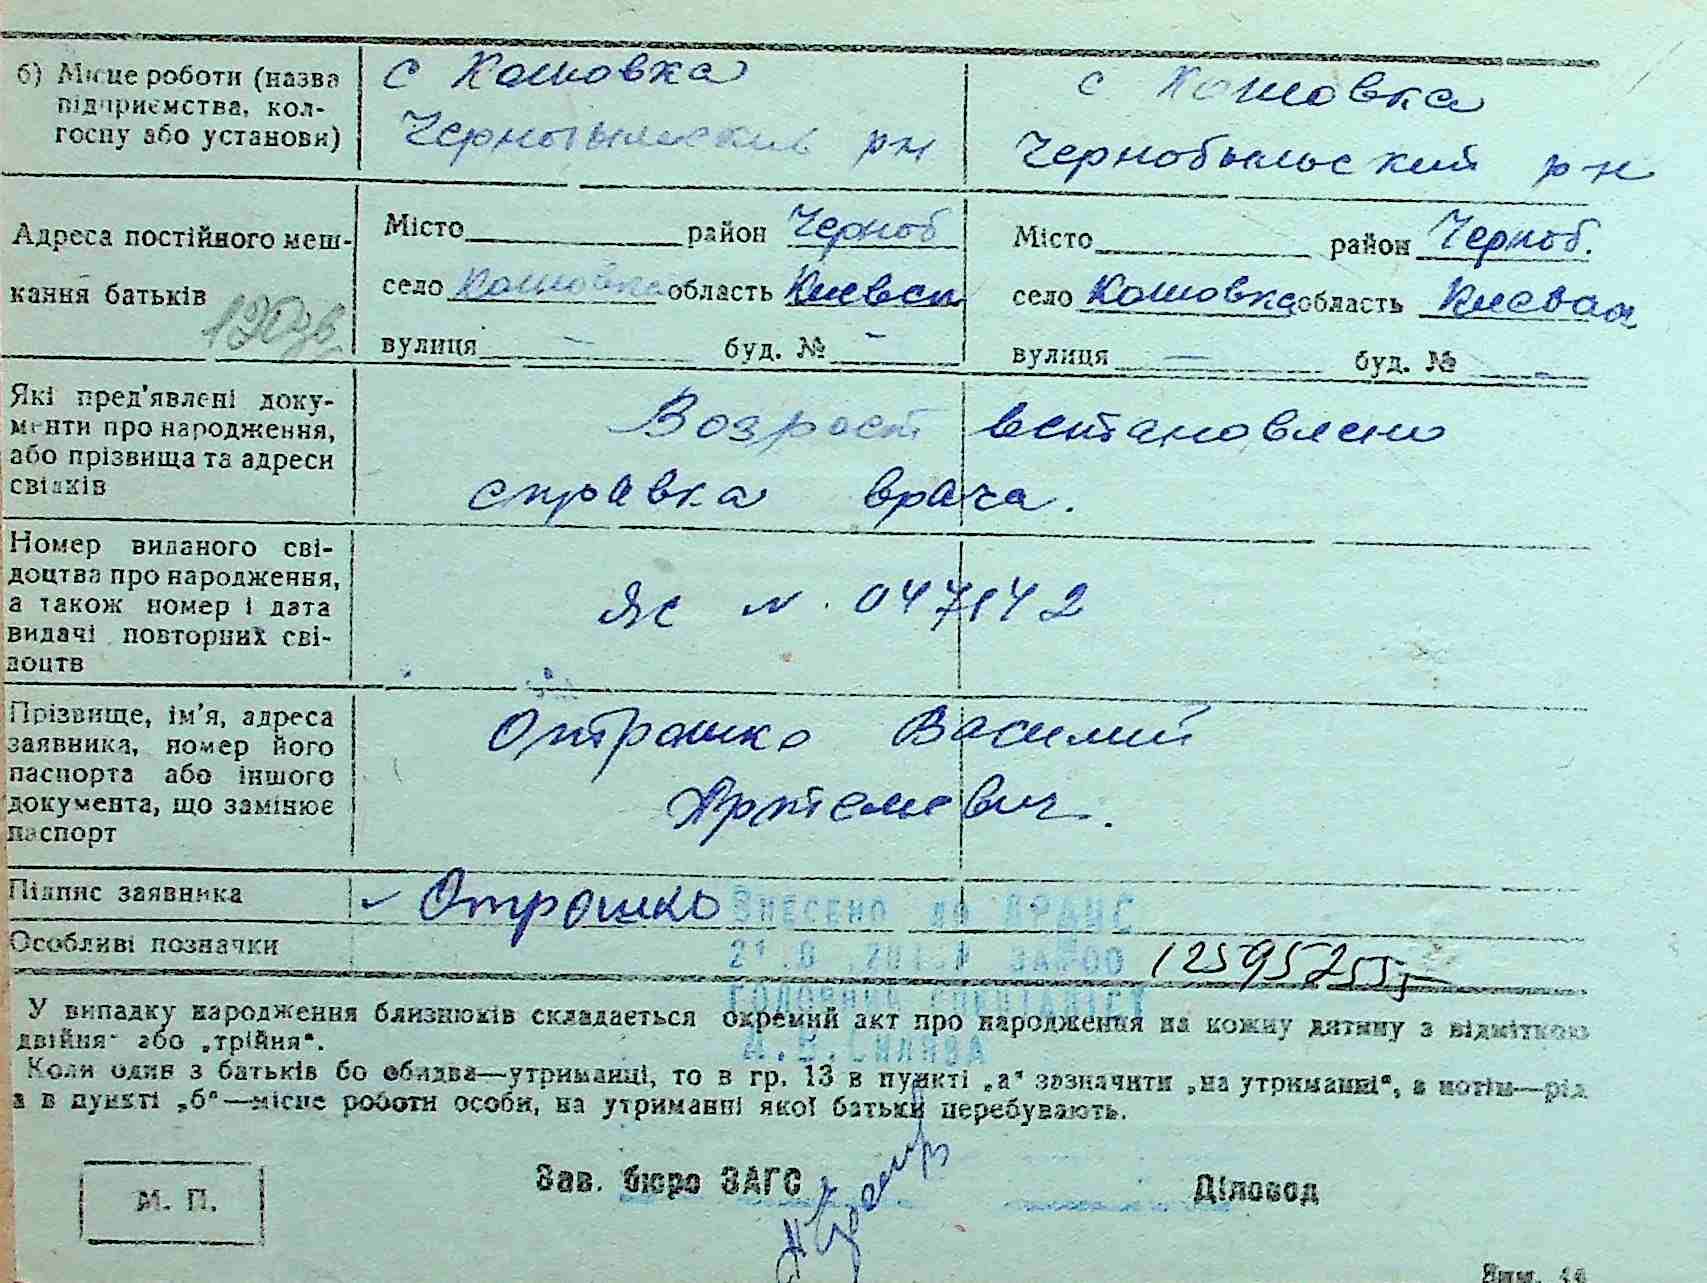 б) Місце роботи (назва підприємства, колгоспу або установи)
с Кошовка
Чернобыльский рн
с Кошовка
Чернобыльский р-н
Адреса постійного мешкання батьків
Місто район Черноб
село Кошовка область Киевск
вулиця — буд. № -
Місто район Черноб.
село Кошовка область
вулиця — буд. № -
Які пред'явлені документи про народження, або прізвища та адреси свідків
Возраст встановлено
справка врача.
Номер виданого свідоцтва про народження, а також номер і дата видачі повторних свідоцтв
ЯС N. 047142
Прізвище, ім'я, адреса заявника, номер його паспорта або іншого документа, що замінює паспорт
Отрошко Василий
Артемевич.
Підпис заявника
Отрошко
ВНЕСЕНО ДО ДРАЦС
Особливі позначки
ГОЛОВНИЙ СПЕЦІАЛІСТ
У випадку народження близнюків складається окремий акт про народження на кожну дитину з відміткою
двійня" або „трійня".
Коли один з батьків бо обидва—утриманці, то в гр. 13 в пункті „а" зазначити „на утриманні", а потім—рід
а в пункті „б"—місце роботи особи, на утриманні якої батьки перебувають.
М. П.
Зав. бюро ЗАГС
Діловод